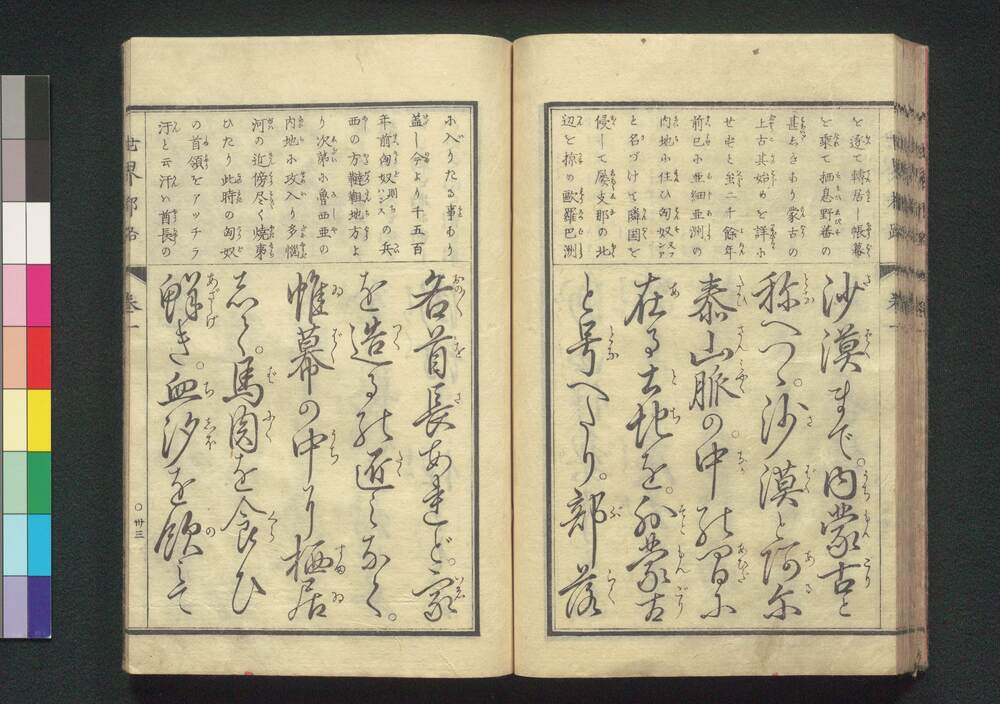 を逐て轉居し帳幕
を乗て栖息野蕃の
甚しきあり蒙古の
上古其始めを詳に
せずと雖二千餘年
前已に亜細亜洲の
内地に住ひ匈奴
と名づけて隣国を
侵して屡支那の北
辺を掠め歐羅巴洲
沙漠まで。内蒙古と
称へつゝ。沙漠と阿尓
泰山脈の中の間に
在る土地を。外蒙古
と号へたり。部落
に入りたる事あり
蓋し今より千五百
年前匈奴則ちハンスの兵
西の方韃靼地方よ
り次第に魯西亜の
内地に攻入り多惱
河の近傍尽く焼棄
ひたり此時の匈奴
の首領をアッチラ
汗と云汗は首長の
各首長あれど。家
を造るの匠もなく。
帷幕の中に栖居
して。馬肉を食ひ
鮮き。血汐を飲みて
世界都路 巻一
〇 卅三